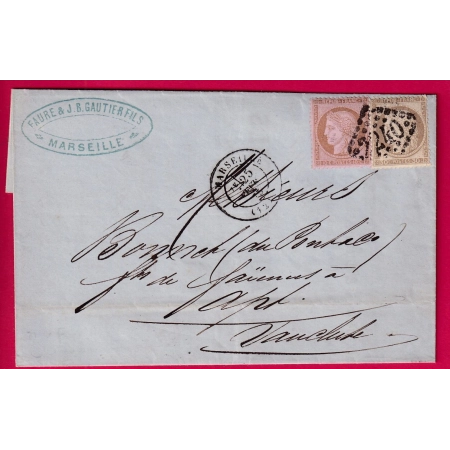 FAURE & J.B. GAUTIER FILS
MARSEILLE
MARSEILLE
25
(12)
Messieurs
Bonnet (du Ponhaco)
fts de faïences à
Apt.
Vaucluse